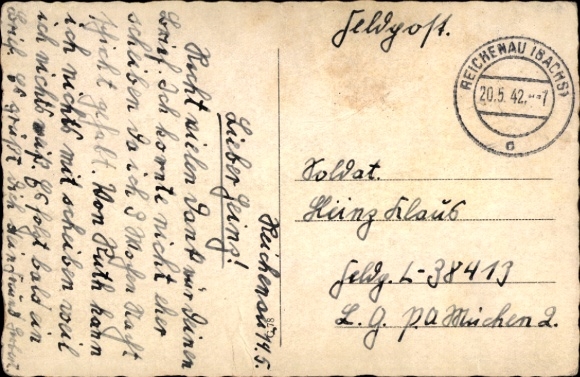 Feldpost.
REICHENAU (SACHS)
20.5.42.
a
Soldat.
Heinz Klaus
Feldp. L-38413
L. g. p.a München 2.
Reichenau 19.5.
Lieber Heinz!
Recht vielen Dank für Deinen
Brief. Ich konnte nicht eher
schreiben Da ich 3 Wochen
nicht gefehlt. Von Ruth kann
ich nichts mit schreiben weil
ich nichts weiß. Es folgt bald ein
Brief. Es grüßt Dich